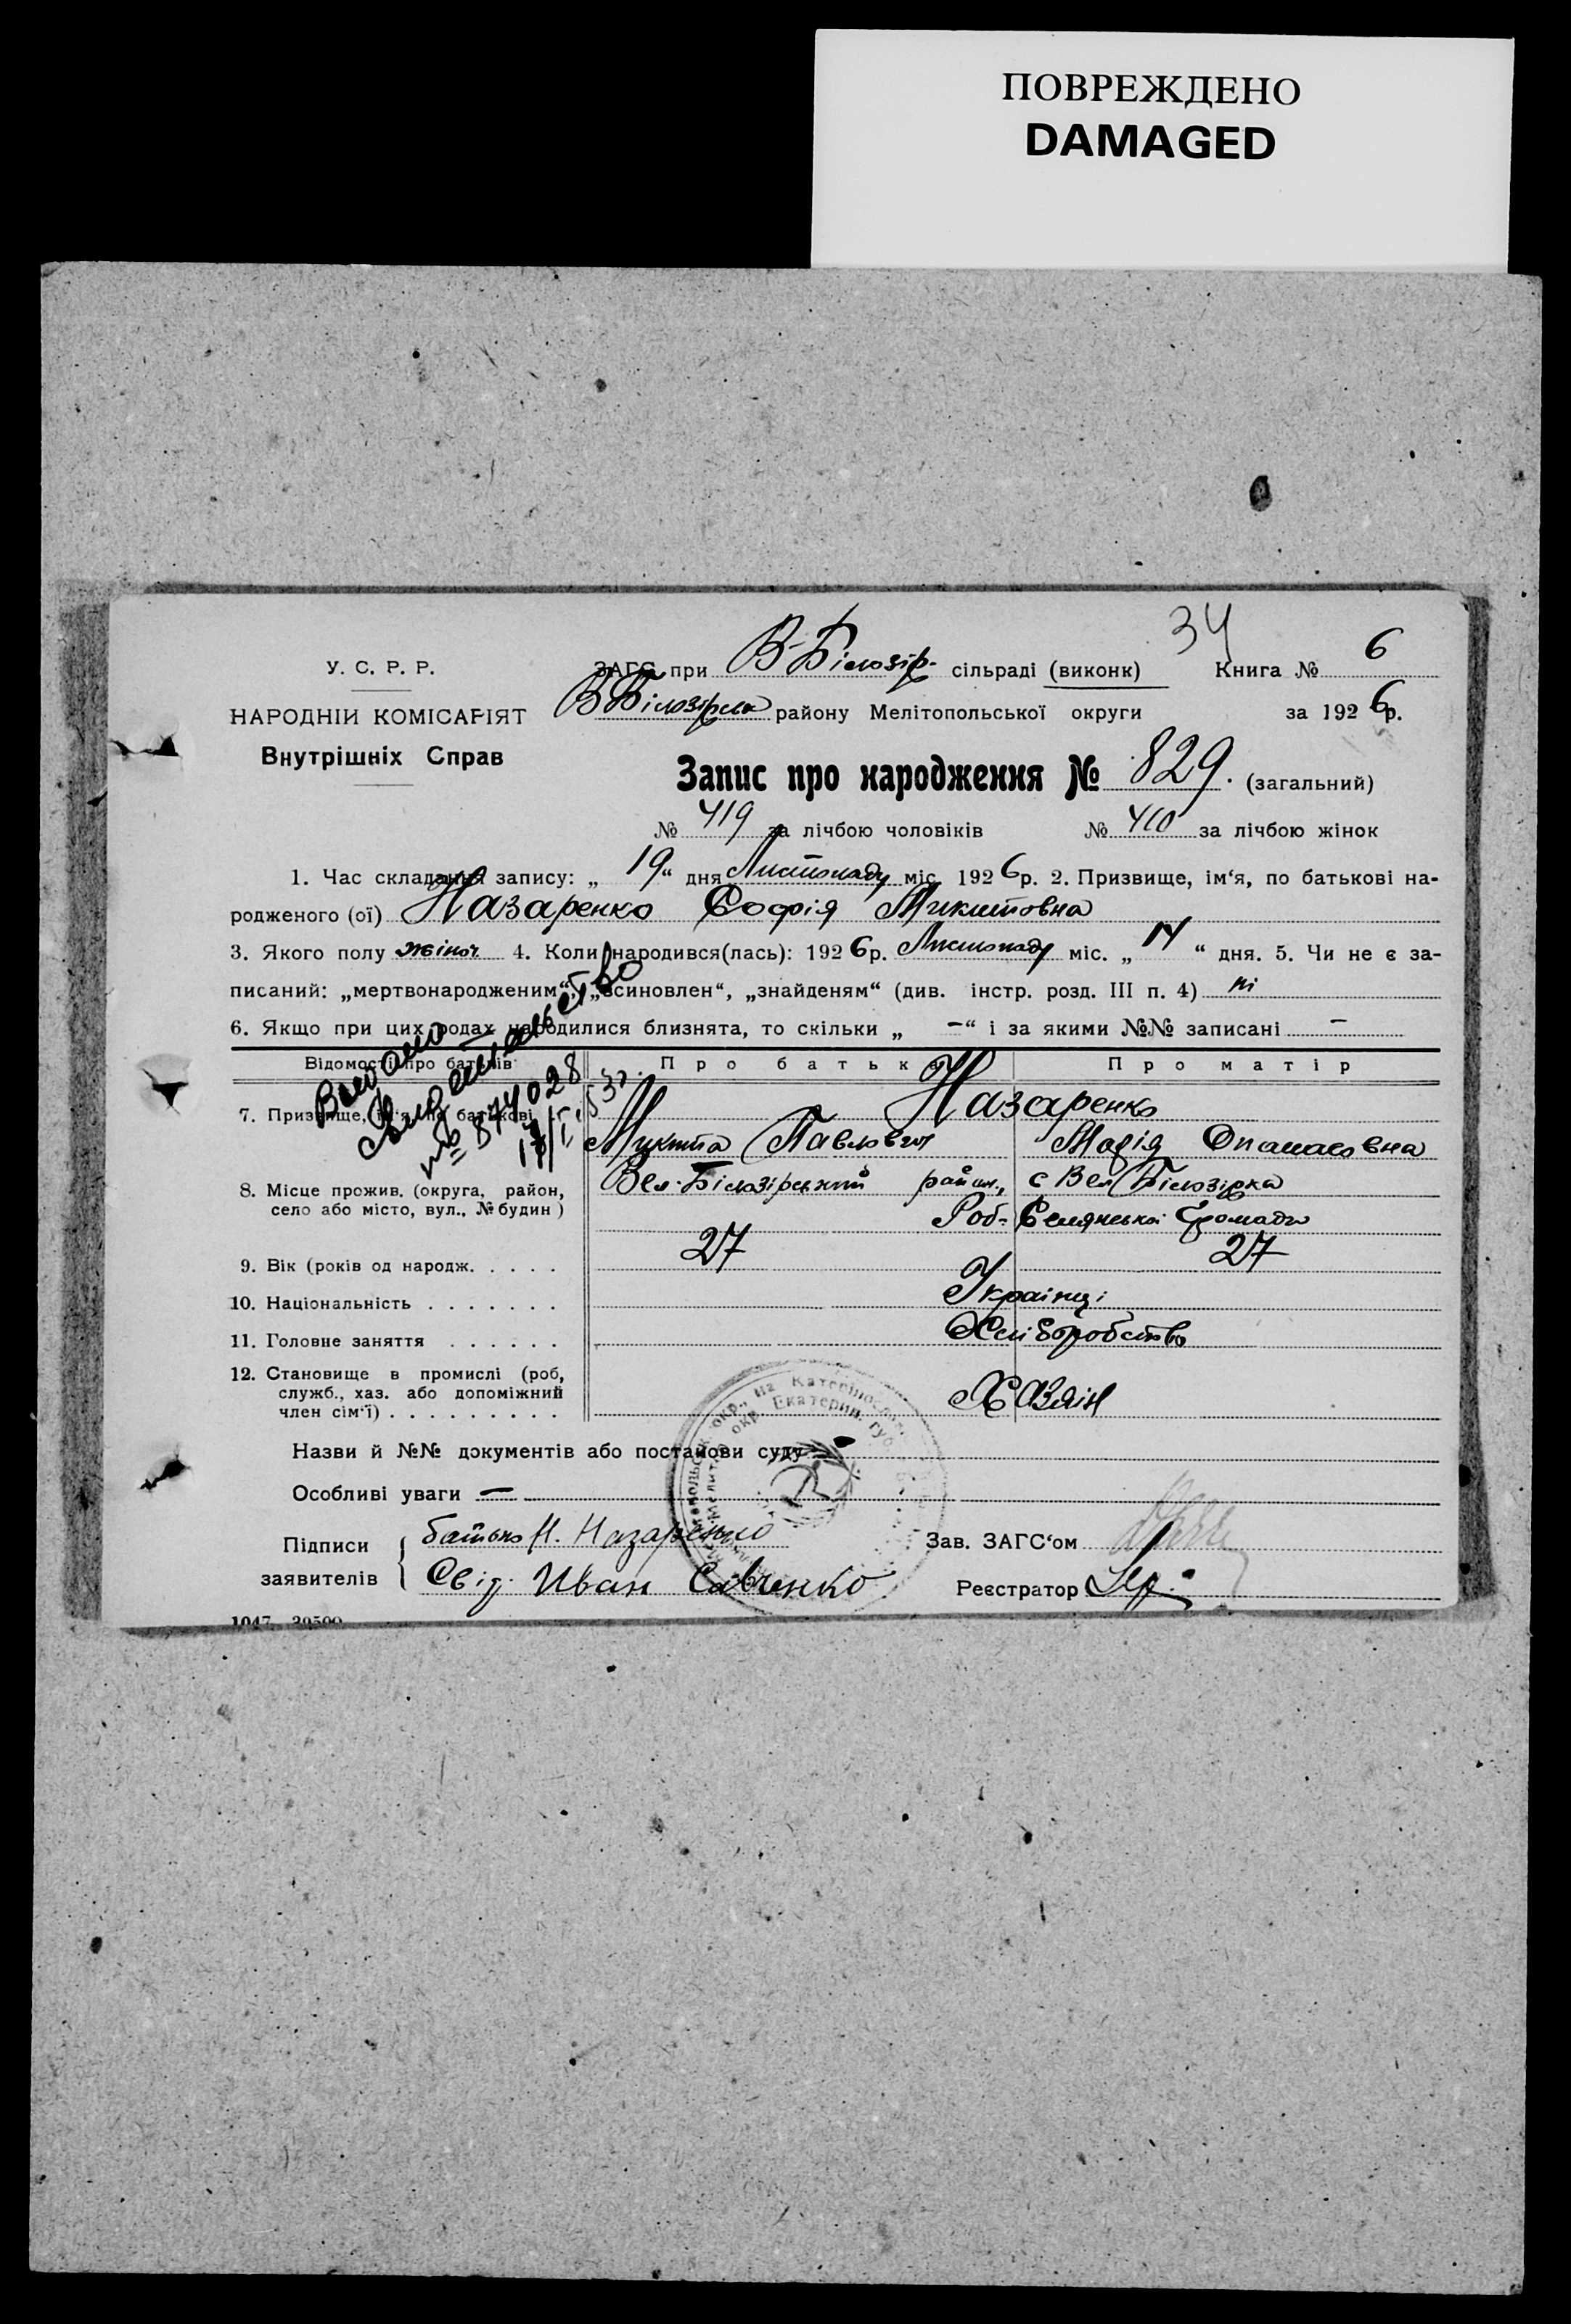 ПОВРЕЖДЕНО
DAMAGED
34
У. С. Р. Р.
ЗАГС при В-Білозір. сільраді (виконк) Книга № 6
НАРОДНІЙ КОМІСАРІЯТ
В Білозірськ району Мелітопольської округи за 1926р.
Внутрішніх Справ
Запис про народження № 829. (загальний)
№ 419 за лічбою чоловіків № 410 за лічбою жінок
1. Час складання запису: „19“ дня Листопаду міс. 1926р. 2. Призвище, ім‘я, по батькові на-
родженого (ої) Назаренко Софія Микитовна
3. Якого полу жіноч. 4. Коли народився(лась): 1926р. Листопаду міс. „14“ дня. 5. Чи не є за-
писаний: „мертвонародженим“, „всиновлен“, „знайденям“ (див. інстр. розд. III п. 4) ні
6. Якщо при цих родах народилися близнята, то скільки „—“ і за якими №№ записані —
Відомості про батьків Про батька Про матір
Выдано
свидетельство
№ 874028
7. Призвище, ім‘я, по батькові Назаренко
Микита Павлович Марія Опанасовна
8. Місце прожив. (округа, район,
село або місто, вул., № будин)
Вел. Білозірський район, с Вел Білозірка
Роб-Селянської Громади
9. Вік (років од народж. . . . . 27 27
10. Національність . . . . . . . Українці
11. Головне заняття . . . . . . Хліборобство
12. Становище в промислі (роб,
служб., хаз. або допоміжний
член сім‘ї) . . . . . . . . . Хазяїн
Назви й №№ документів або постанови суду —
Особливі уваги —
Підписи
заявителів
батько Н. Назаренко
Свід. Иван Савченко
Зав. ЗАГС‘ом
Реєстратор
1047 30500